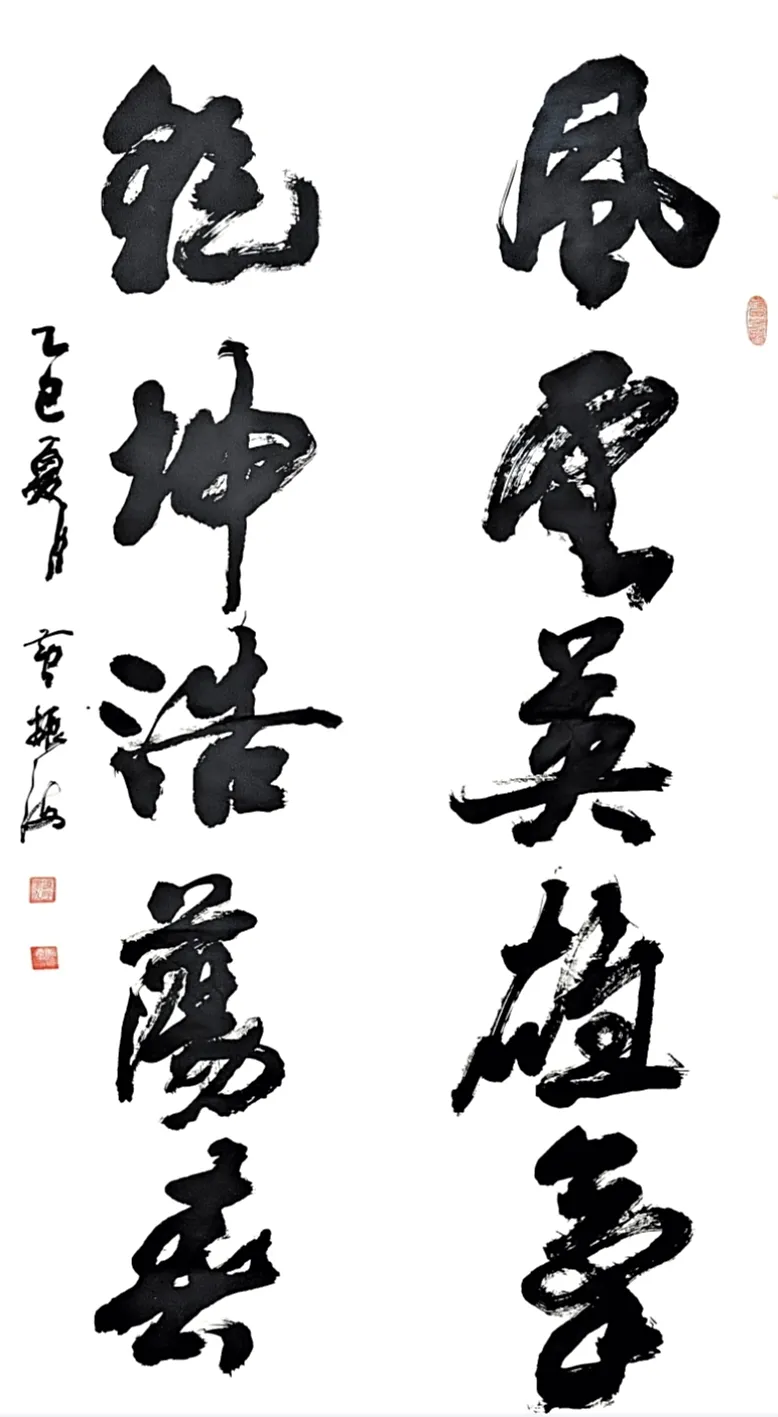 風雲英雄氣
乾坤浩蕩春
乙巳夏月 振海